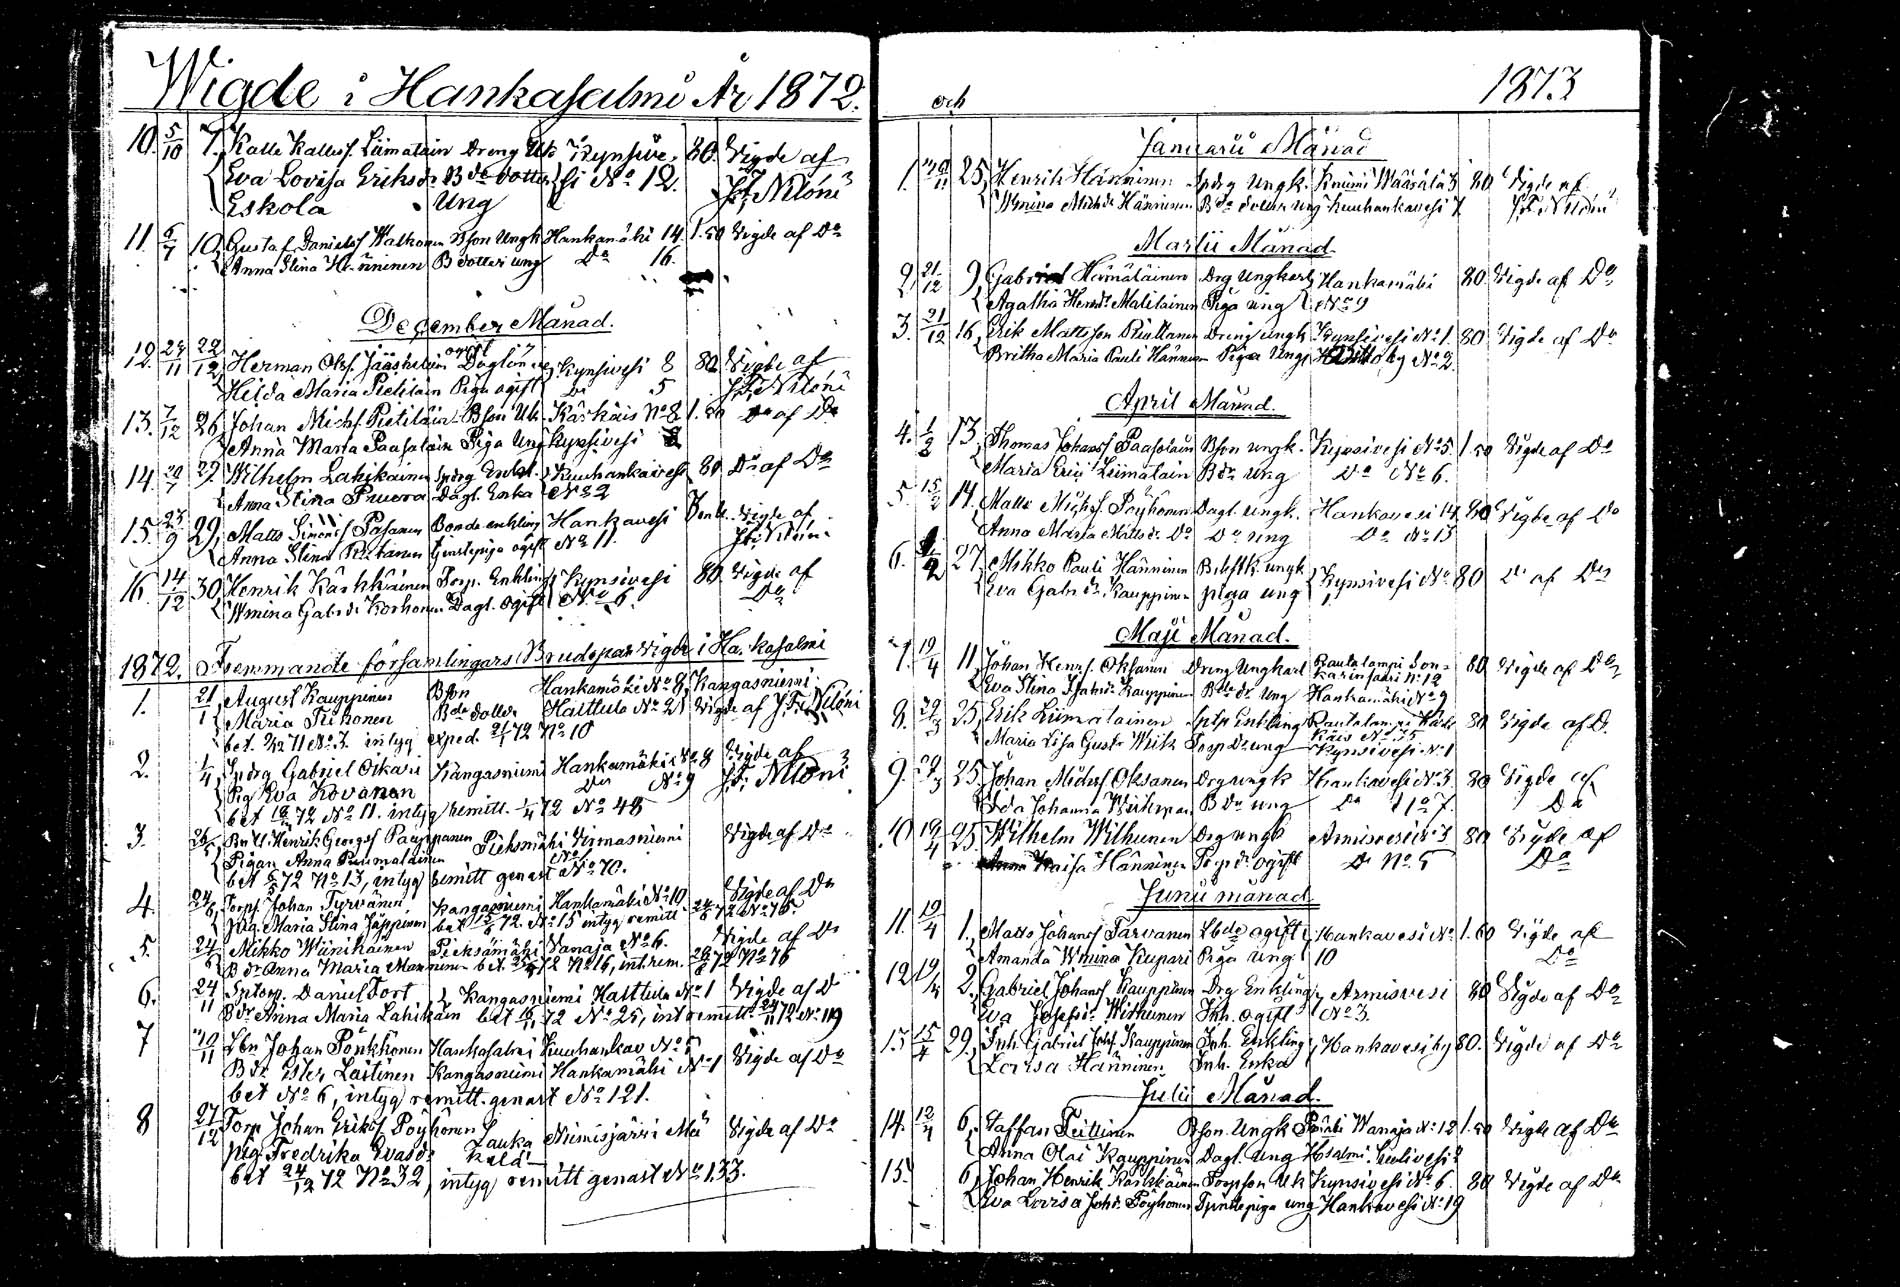 Wigde i Hankasalmi År 1872.
10. 5/10 7. Kalle Kallesf. Liimatain Dreng Uk Kynsive- 80. Vigde af
Eva Lovisa Eriksdr Bde dotter si No 12. J. F. Niloni
Eskola Ung
11. 6/7 10. Gustaf Danielsf Walkonen Bson Ungk Hankamäki 14. 1.50 Vigde af Do
Anna Stina Hänninen Bdotter ung Do 16.
December Månad.
12. 24/11 22/12 Herman Olsf. Jääskeläin Kynsivesi 8 80 Vigde af
Heida Maria Pietiläin Piga ogift Do 5 J. F. Niloni
13. 7/12 26 Johan Michsf. Pietiläin Bson Uk. Kärkäis No 8 1.50 Do af Do
Anna Maria Paasolain Piga Ung Kynsivesi 2
14. 29. Wilhelm Lahikainen Spdrg Enkl. Kuuhankavesi 80 Do af Do
Anna Stina Dagl. Enka No 2
15. 29. Matts Simonsf Pasanen Bonde enkling Hankavesi Vigde af
Anna Stina tjenstepiga ogift No 11. J. F. Niloni
16. 14/12 30. Henrik Kärkkäinen Torp. Enkling Kynsivesi 80. Vigde af
Wmina Gabrdr Korhonen Dagl. ogift No 6. Do
1872. Fremmande församlingars Brudepar vigde i Hankasalmi
1. 21/1 August Kauppinen Bson Hankamäki No 8, Kangasniemi
Maria Tikonen Bde dotter Halttula No 2 Vigde af J. F. Niloni
bet. 71 No 7. intyg exped. 21/1 72 No 10
2. 1/4 Spdrg Gabriel Oikari Kangasniemi Hankamäki No 8 Vigde af
Pig Eva Kovanen Do No 9 J. F. Niloni
bet 72 No 11. intyg remitt. 1/4 72 No 48
3. 26/5 Henrik Georgsf Pauppanen Pieksmäki Vigde af Do
Pigan Anna Puumalainen
bet 72 No 13, intyg remitt genast No 70.
4. 24/6 Torp. Johan Tyrvänen Kangasniemi Hankamäki No 10 Vigde af Do
pig. Maria Stina Jäppinen bet 72. No 15 intyg remitt 24/6 72 No 75.
5. 24/6 Mikko Wiinikainen Pieksämäki Vanaja No 6. Vigde af Do
Bdr Anna Maria Manninen bet. 72 No 16, int. rem. 72 No 76
6. 24/11 Sptorp. Daniel Tort Kangasniemi Halttula No 1 Vigde af D
Bdr Anna Maria Lahikain bet 72 No 25, int remitt. 24/11 72 No 119
7 10/11 Johan Pönkkönen Hankasalmi Kuuhankav No 5
Bdr. Ester Laitinen Kangasniemi Hankamäki No 1 Vigde af Do
bet No 6, intyg remitt. genast No 121.
8 27/12 Torp Johan Eriksf Pöyhönen Lauka Niemisjärvi Vigde af Do
pig. Fredrika Evasdr
bet 24/12 72 No 32, intyg remitt genast No 133.
och 1873
Januarii Månad
1. 25. Henrik Hänninen Spdrg Ungk. Kniimi Määsälä 3 80 Vigde af
Wmina Michdr Hänninen Bde dotter ung Kuuhankavesi 7. J. F. Niloni
Martii Månad.
2. 21/12 9. Gabriel Hämäläinen Drg Ungkarl Hankamäki 80. Vigde af Do
Agatha Henrdr Matilainen Piga ung No 9
3. 21/12 16. Erik Mattsson Riuttanen Dreng ungk Kynsivesi No 1. 80 Vigde af Do
Britha Maria Pauli Hänninen Piga Ung No 2.
April Månad.
4. 1/2 13. Thomas Johansf Paasolain Bson ungk. Kynsivesi No 5. 1.50 Vigde af Do
Maria Erici Liimatain Bdr Ung Do No 6.
5. 15/2 14. Matts Michsf. Pöyhönen Dagl. ungk. Hankavesi 14 80 Vigde af Do
Anna Maria Mattsdr Do Do ung Do No 13
6. 27 Mikko Pauli Hänninen ungk Kynsivesi No 80 Do af Do
Eva Gabrdr. Kauppinen piga ung 1.
Maji Månad.
7. 19/4 11 Johan Henrsf. Oksanen Dreng Ungkarl Rautalampi Son- 80 Vigde af Do
Eva Stina Isaksdr Kauppinen Bde dr ung Hankamäki No 9
8. 25. Erik Liimatainen Sptp Enkling Rautalampi Kärk- 80 Vigde af D.
Maria Lisa Gustdr Wirk Torp Dr ung Kynsivesi No 1
9. 25. Johan Michsf Oksanen Drg ungk Hankavesi No 3. 80 Vigde af
Ida Johanna Bdr ung Do No 7. Do
10 19/4 25. Wilhelm Wilhunen Drg ungk Armisvesi 3 80 Vigde af
Kaisa Hänninen Torpdr ogift Do No 5 Do
Junii månad
11. 19/4 1. Matts Johansf Tarvanen ogift Hankavesi No 1.60 Vigde af
Amanda Wmina Kupari Piga ung 10 Do
12 19/4 2. Gabriel Johansf Kauppinen Drg Enkling Armisvesi 80 Vigde af Do
Eva Josefsdr Wirkunen Inh. ogift No 3.
13 15/4 29. Inh. Gabriel Johsf. Kauppinen Inh. Enkling Hankavesi by 80. Vigde af Do
Lovisa Hänninen Inh. Enka
Julii Månad.
14. 12/4 6. Staffan Teittinen Bson Ungk Wanaja No 12 1.50 Vigde af Do
Anna Olai Kauppinen Dagl. Ung Hsalmi
15. 6. Johan Henrik Kärkkäinen Torpson Uk Kynsivesi No 6. 80 Vigde af Do
Eva Lovisa Johdr. Pöyhönen Tjenstepiga ung Hankavesi No 19